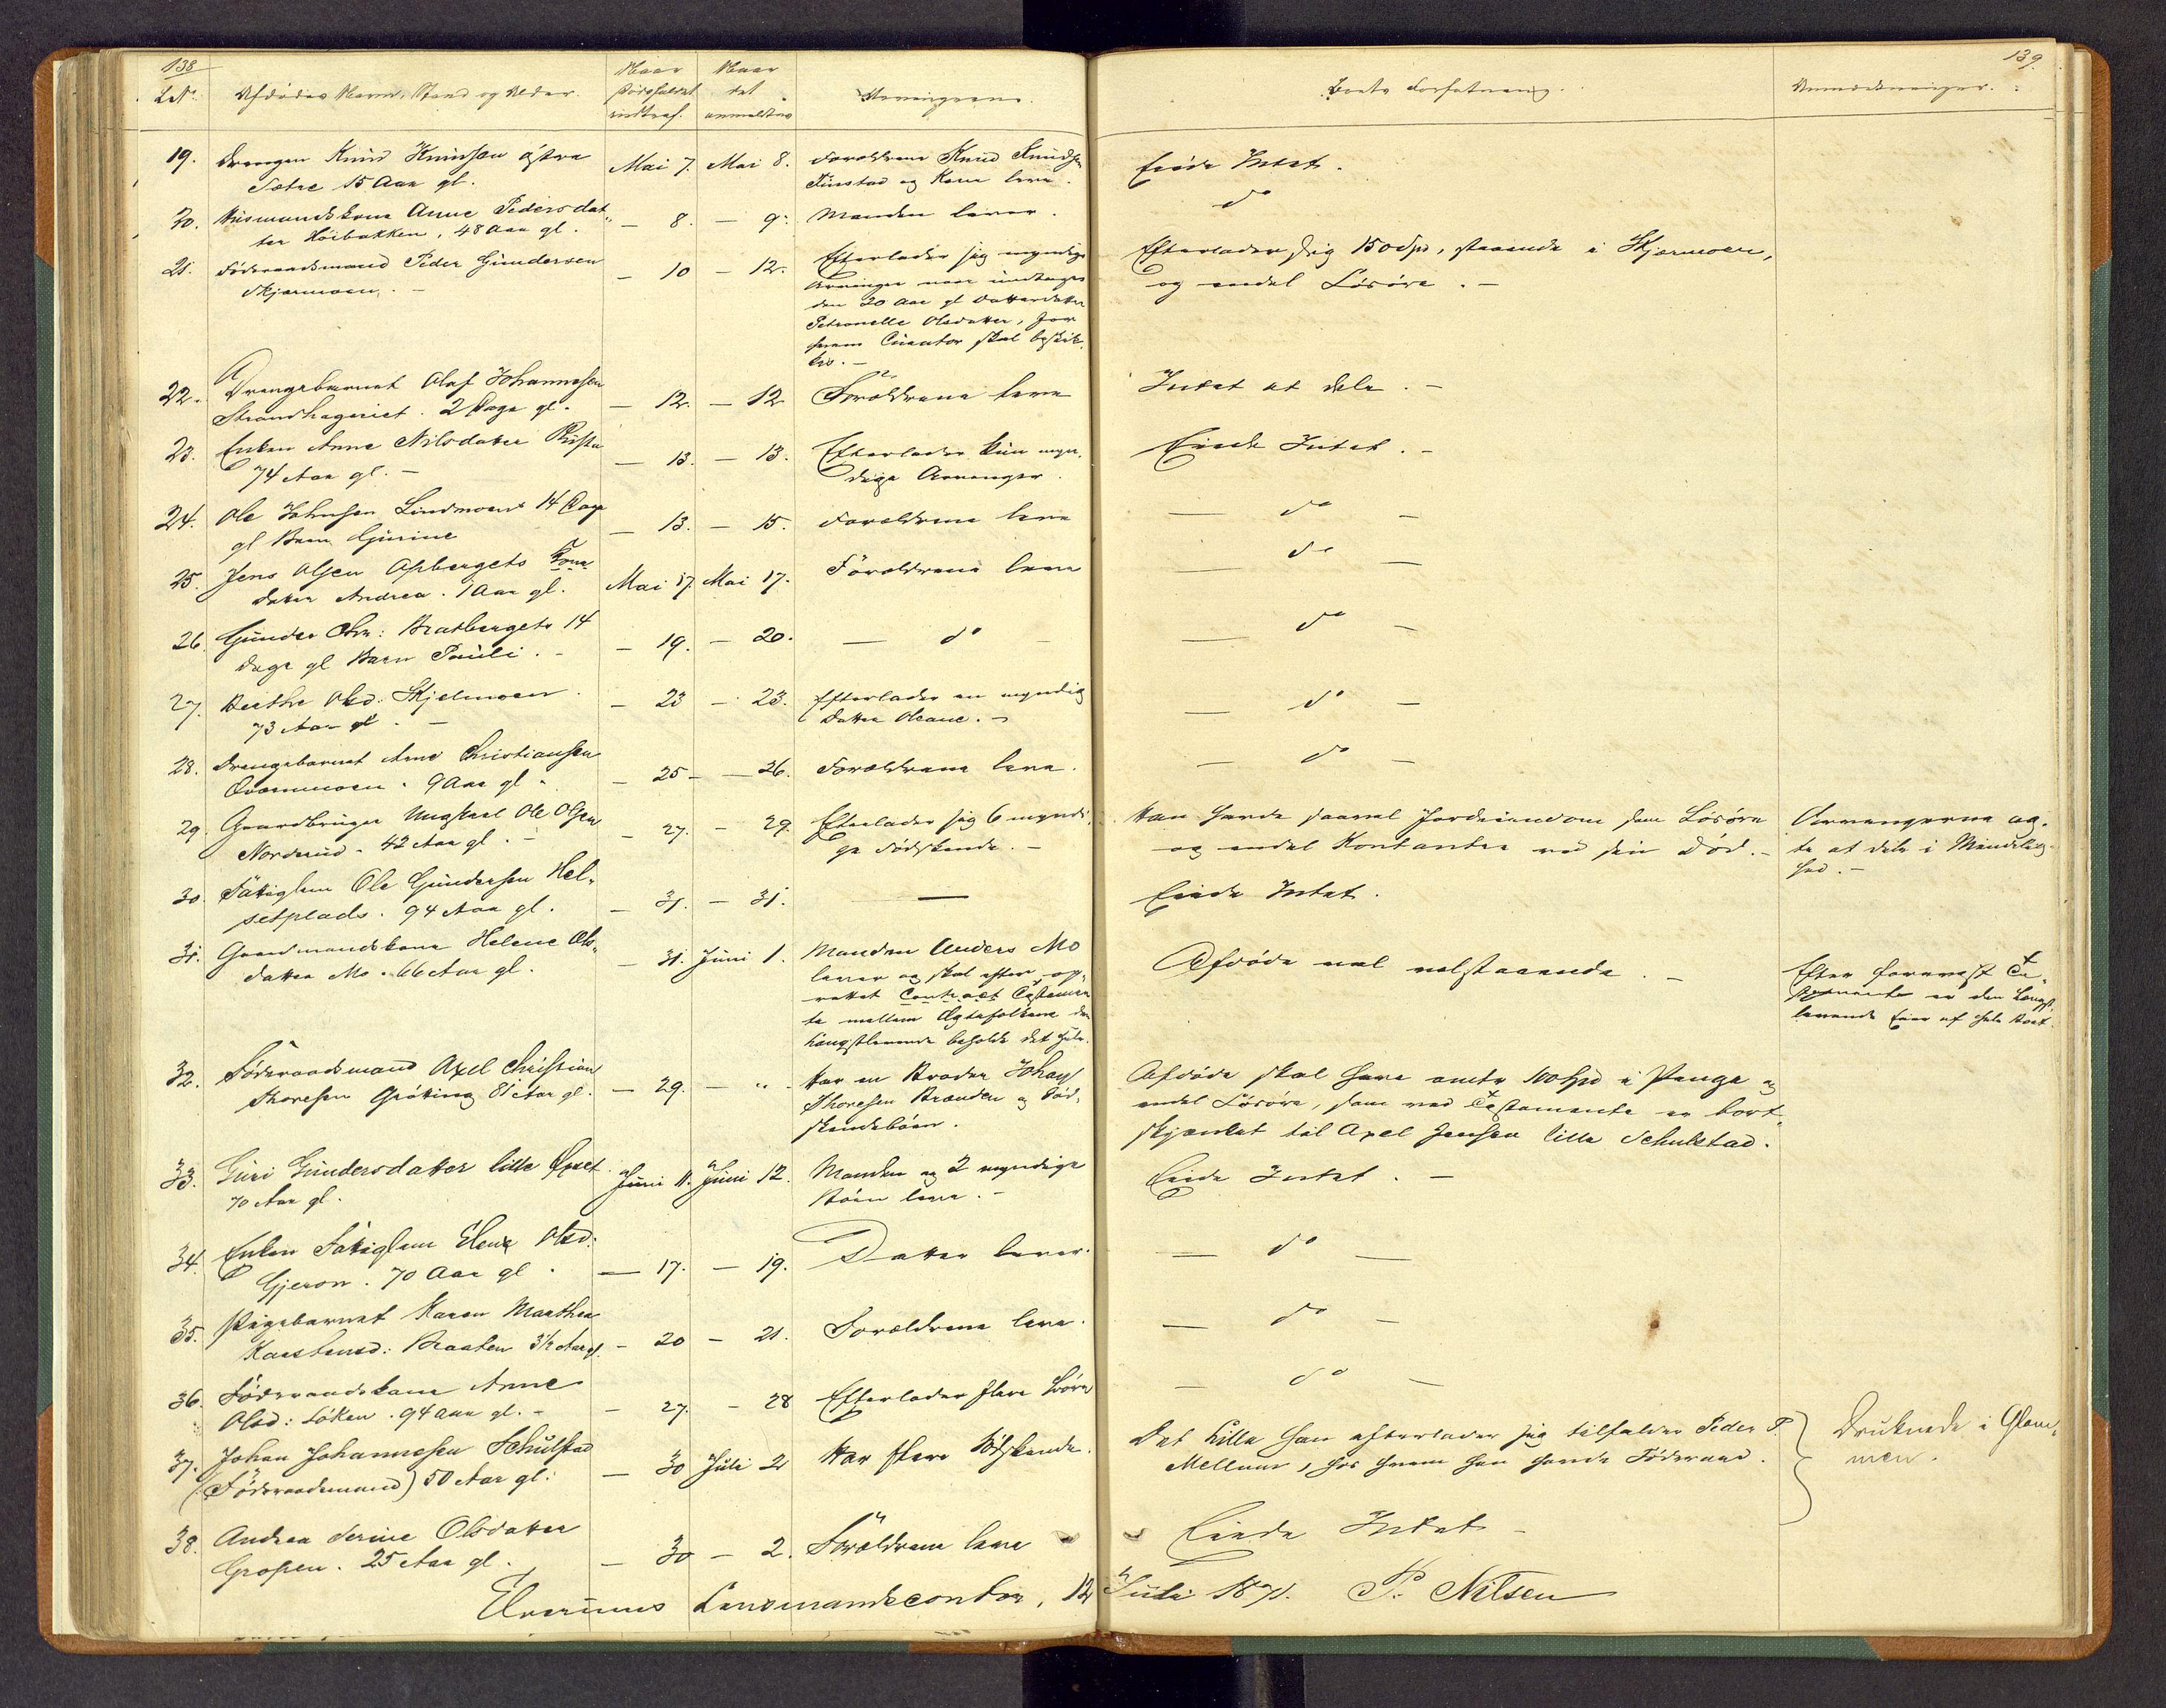 138
L.No
Afdödes Navn, Stand og Alder.
Naar
Dödsfaldet
indtraf.
Naar
det
anmeldtes
Arvingerne.
Boets Forfatning.
Anmærkninger.
139.
19. Drengen Knud Knudsen östre
Sætre 15 Aar gl.
Mai 7. Mai 8. Forældrene Knud Knudsen
og Kone leve.
Eiede Intet.
20. Husmandskone Anne Pedersdat-
ter Höibakken, 48 Aar gl.
— 8. — 9. Manden lever.
do
21. Föderaadsmand Peder Gundersen
Skjærmoen. —
— 10 — 12. Efterlader sig myndige
Arvinger naar undtages
den 20 Aar gl Datterdatter
Petronelle Olsdatter, for
hvem Curator skal beskik-
kes. —
Efterlader sig 150 Spd, staaende i Skjærmoen,
og endel Lösöre. —
22. Drengebarnet Olaf Johannesen
Strandhageriet. 2 Dage gl.
— 12. — 12 Forældrene leve
Intet at dele. —
23. Enken Anne Nilsdatter
74 Aar gl. —
— 13. — 13. Efterlader kun myn-
dige Arvinger.
Eiede Intet. —
24. Ole Johnsen Lindmoens 14 Dage
gl Barn Gjurine
— 13. — 15. Forældrene leve
— do —
25. Jens Olsen Opbergets
Datter Andrea. 1 Aar gl.
Mai 17. Mai 17. Forældrene leve
— do —
26. Gunder Chr: Bratbergets 14
Dage gl Barn Pauli. —
— 19. — 20. — do —
— do —
27. Berthe Olsd: Skjelmoen.
73 Aar gl. —
— 23 — 23. Efterlader en myndig
Datter Oleane. —
— do —
28. Drengebarnet Arne Christiansen
Qværnmoen. 9 Aar gl.
— 25 — — 26. Forældrene leve.
— do —
29. Gaardbruger Ungkarl Ole Olsen
Norderud. 42 Aar gl. —
— 27. — 29. Efterlader sig 6 myndi-
ge Södskende. —
Han havde saavel Jordeiendom som Lösöre
og endel Kontanter ved sin Död. —
Arvingerne ag-
te at dele i Mindelig-
hed. —
30. Fattiglem Ole Gundersen Hel-
setplads. 94 Aar gl.
— 31. — 31. —
Eiede Intet.
31. Gaardmandskone Helene Ols-
datter Mo. 66 Aar gl.
— 31. Juni 1. Manden Anders Mo
lever og skal efter op-
rettet Contract Testamen-
te mellem Ægtefolkene den
Længstlevende beholde det hele.
Afdöde vel velstaaende. —
Efter forevist Te-
stamente er den Længst-
levende Eier af hele Boet.
32. Föderaadsmand Axel Christian
Thoresen Gröting 81 Aar gl.
— 29. — " — Har en Broder Johan
Thoresen Brænden og Söd-
skendebörn.
Afdöde skal have omtr 100 Spd i Penge og
endel Lösöre, som ved Testamente er bort-
skjænket til Axel Jensen lille Schulstad.
33. Guri Gundersdatter lille Opset
70 Aar gl.
Juni 11. Juni 12. Manden og 2 myndige
Börn leve. —
Eiede Intet. —
34. Enken Fattiglem Elene Olsd:
Gjeron. 70 Aar gl.
— 17. — 19. Datter lever.
— do —
35. Pigebarnet Karen Marthea
Karstensd: Braaten 3½ Aar gl.
— 20 — 21. Forældrene leve.
— do —
36. Föderaadskone Anne
Olsd: Löken. 94 Aar gl. —
— 27. — 28 Efterlader flere Börn
— do —
37. Johan Johannesen Schulstad
(Föderaadsmand) 50 Aar gl.
— 30 Juli 2 Har flere Södskende.
Det Lille han efterlader sig tilfalder Peder P.
Mellum, hos hvem han havde Föderaad.
Druknede i Glom-
men.
38. Andrea Serine Olsdatter
Gropen. 25 Aar gl.
— 30 — 2. Forældrene leve
Eiede Intet —
Elverums Lensmandscontor, 12 Juli 1871. P. Nilsen